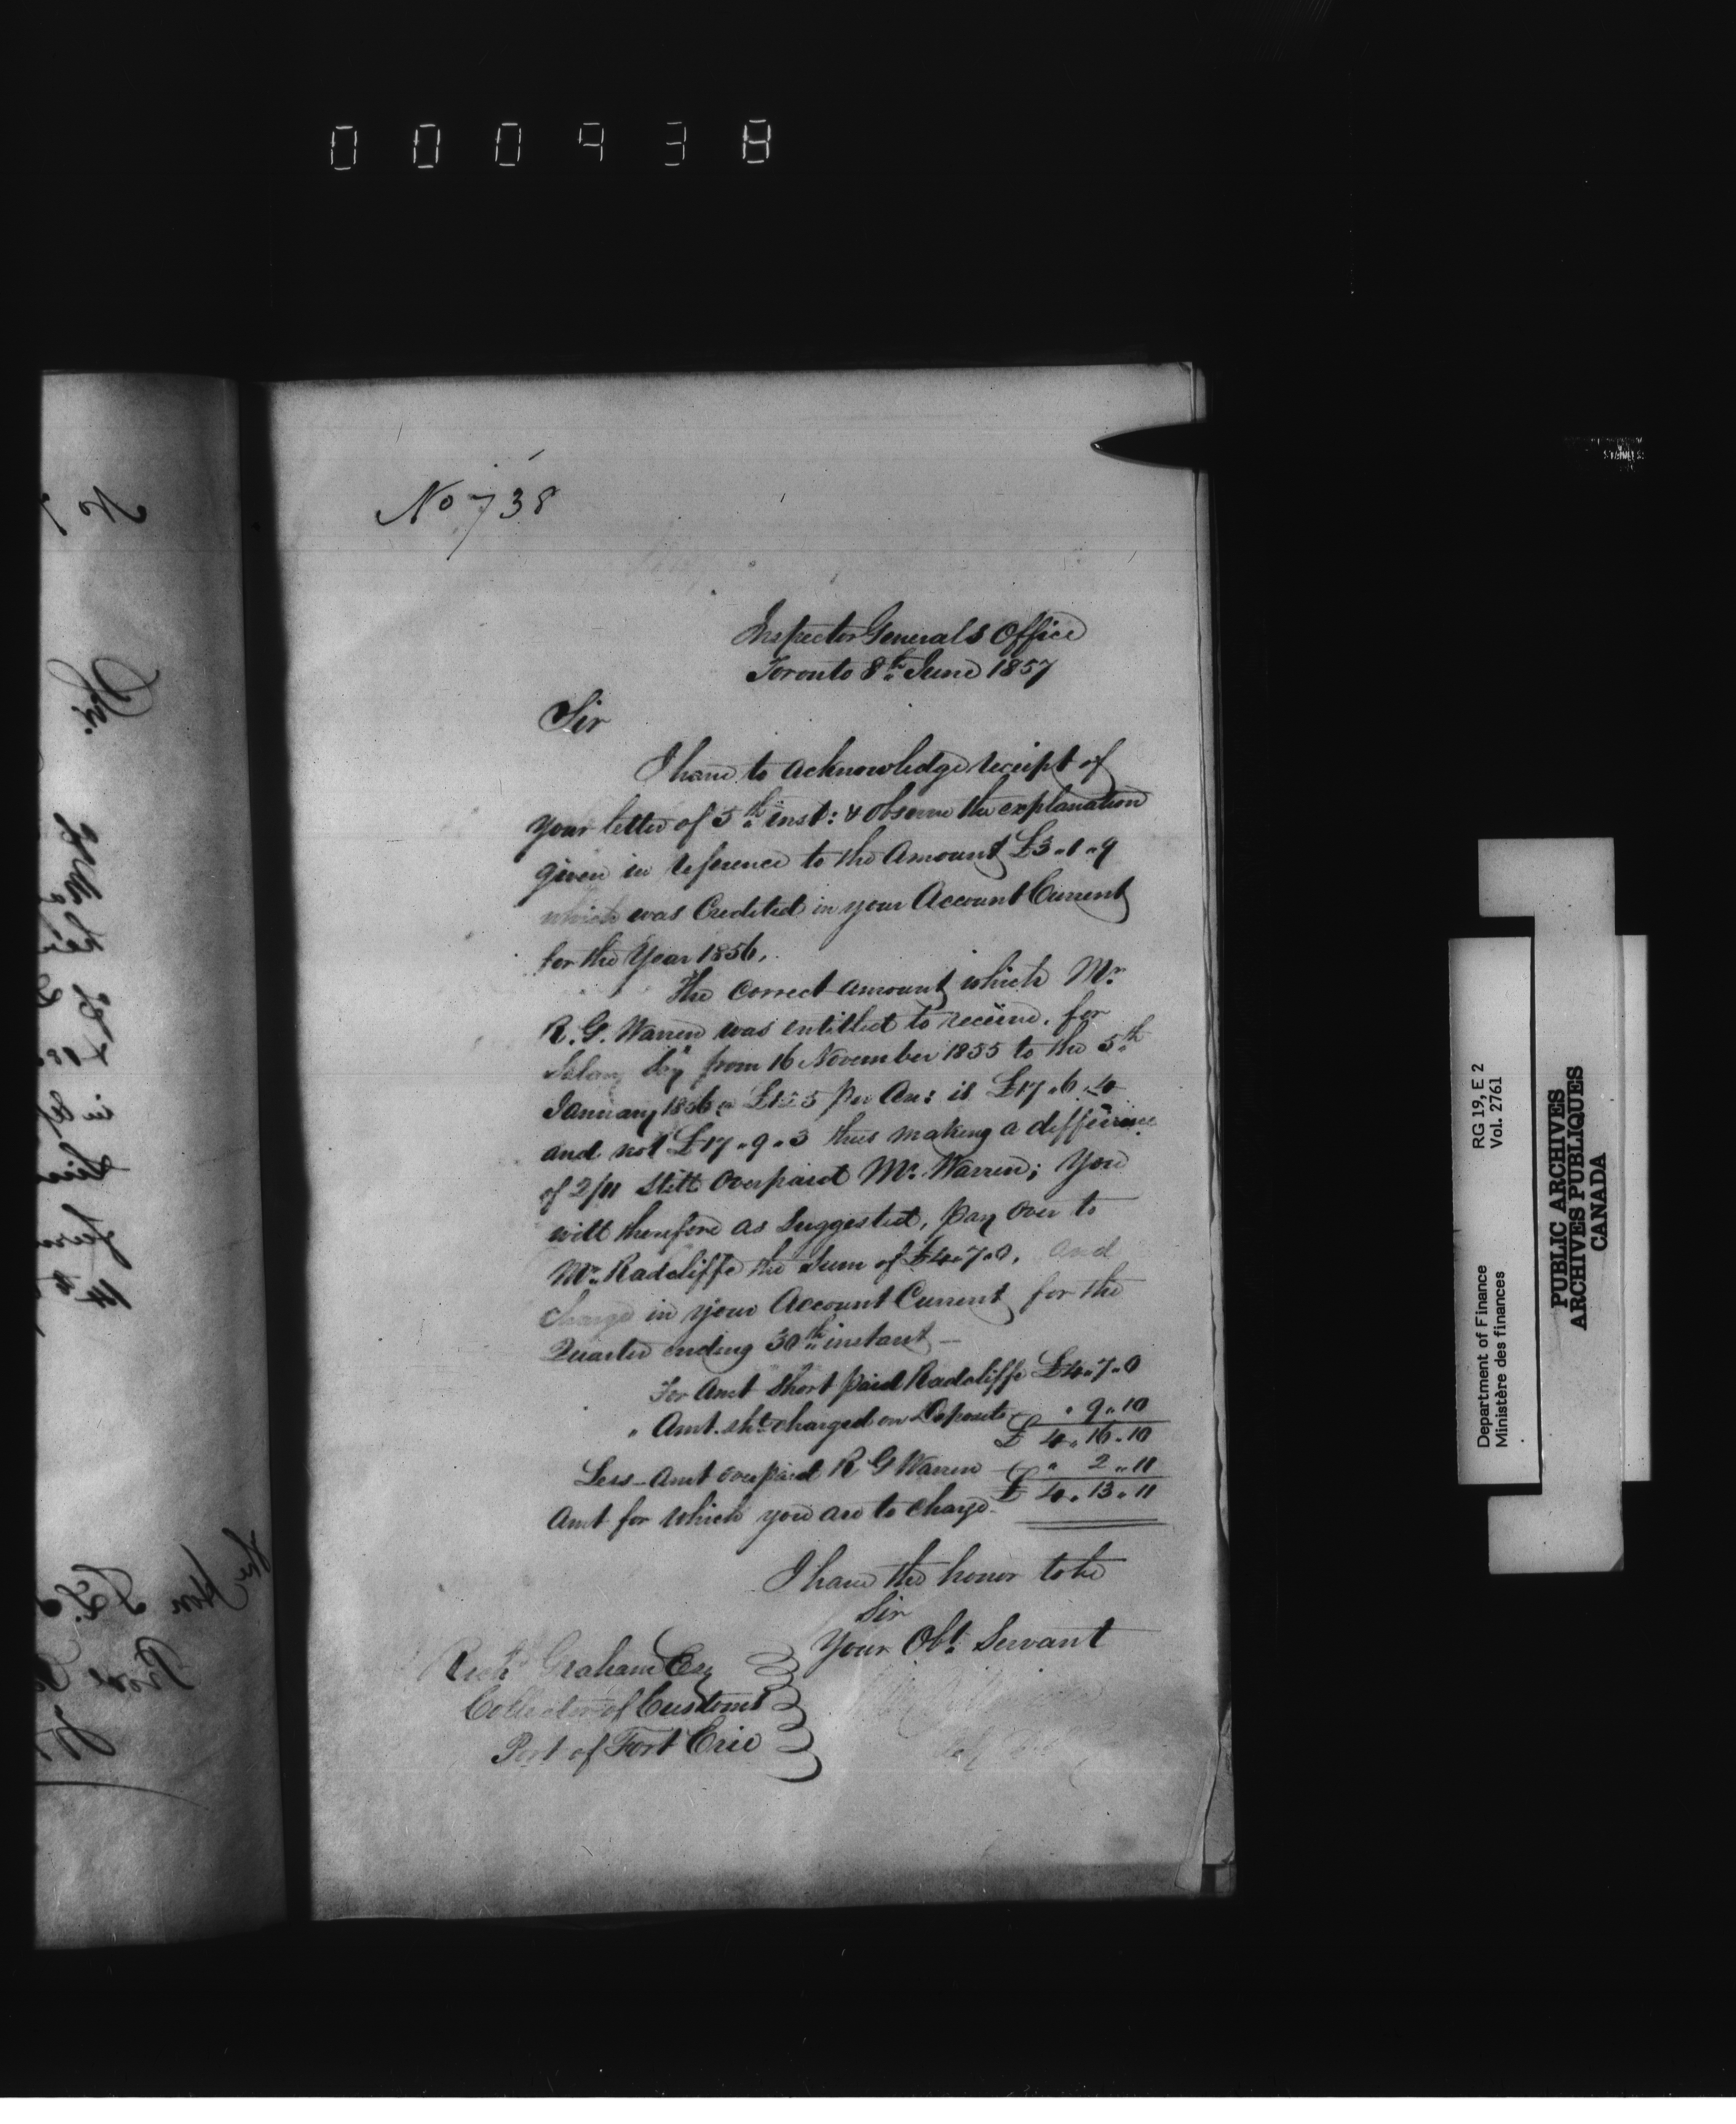 000938
No 738
Inspector Generals Office
Toronto 8th June 1857
Sir
I have to acknowledge receipt of
your letter of 5th inst: & observe the explanation
given in reference to the Amount £3 " 1 " 9
which was Credited in your Account Current
for the Year 1856,
The correct amount which Mr
R. G. Warren was entitled to receive, for
Salary from 16 November 1855 to the 5th
January 1856 @ £125 per An: is £17 " 6 " 4
and not £17 " 9 " 3 thus making a difference
of 2/11 still overpaid Mr. Warren; You
will therefore as suggested, pay over to
Mr. Radcliffe the Sum of £4 " 7 " 0, and
charge in your Account Current for the
Quarter ending 30th instant —
For Amt short paid Radcliffe £4 " 7 " 0
" Amt. sht. charged on Deposits " 9 " 10
£ 4 " 16 " 10
Less - Amt over paid R G Warren " 2 " 11
Amt for which you are to charge £ 4 " 13 " 11
I have the honor to be
Sir
Your Obt. Servant
Richd Graham Esq
Collector of Customs
Port of Fort Erie
Department of Finance RG 19, E 2
Ministère des finances Vol. 2761
PUBLIC ARCHIVES
ARCHIVES PUBLIQUES
CANADA